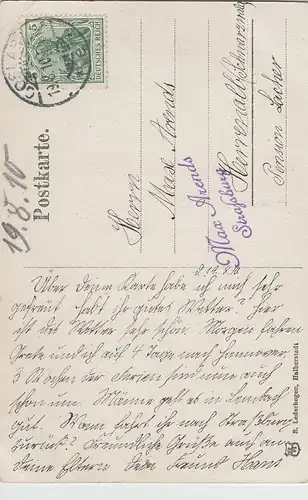 5
DEUTSCHES REICH
19.8.10
Postkarte.
19.8.10
Herrn
Max Arends
Herrenalb (Schwarzwald)
Pension Lacher
Max Arends
Straßburg
d. 19.8.10
Über Deine Karte habe ich mich sehr
gefreut habt ihr gutes Wetter? Hier
ist das Wetter sehr schön. Morgen fahren
Grete und ich auf 4 Tage nach Hannover.
3 Wochen der Ferien sind nun auch
schon um. Männe geht es in
gut. Wann fahrt ihr nach Straßburg
zurück? Freundliche Grüße auch an
Deine Eltern Dein Freund Hans
R. Lederbogen, Halberstadt